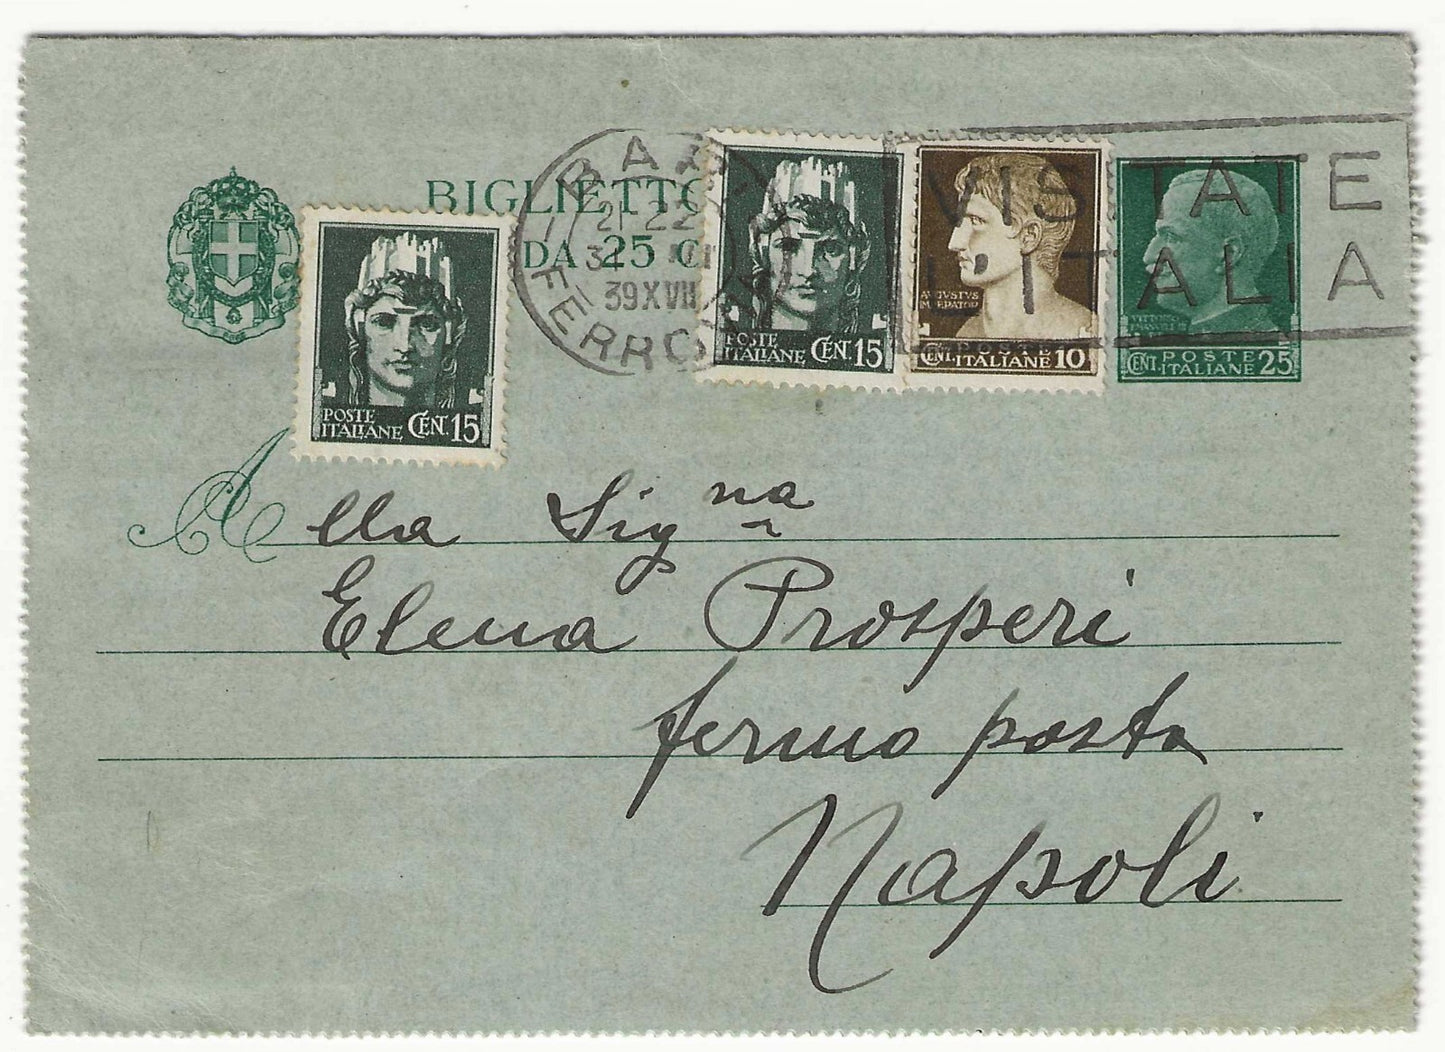 BIGLIETTO
DA 25 C
BARI
21-22
31
39 XVII
FERROVIA
VISITATE
L'ITALIA
POSTE
ITALIANE CENT. 15
POSTE
ITALIANE CENT. 15
AVGVSTVS
IMPERATOR
POSTE
CENT. ITALIANE 10
VITTORIO
EMANUELE III
POSTE
CENT. ITALIANE 25
Alla Signa
Elena Prosperi
fermo posta
Napoli